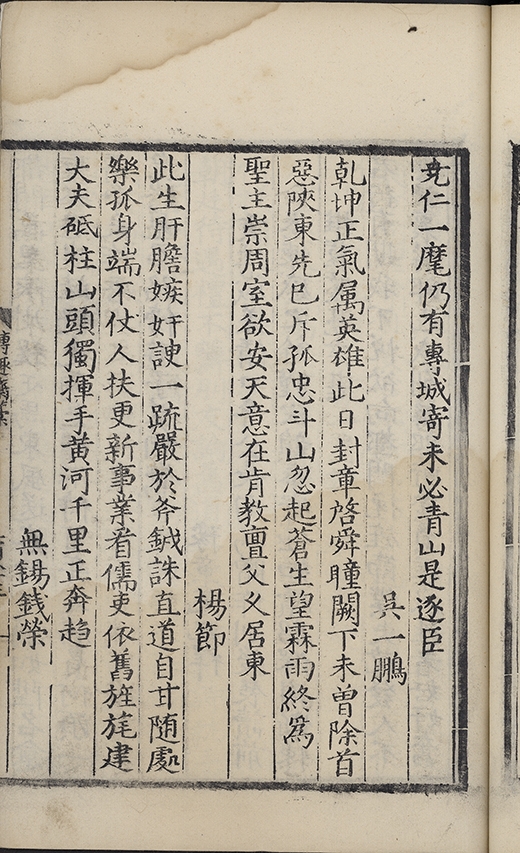 堯仁一麾仍有專城寄未必青山是逐臣
吳一鵬
乾坤正氣属英雄此日封章啓舜瞳闕下未曾除首
惡陝東先已斥孤忠斗山忽起蒼生望霖雨終爲
聖主崇周室欲安天意在肯教亶父乆居東
楊節
此生肝膽嫉奸諛一疏嚴於斧鉞誅直道自甘随處
樂孤身端不仗人扶更新事業看儒吏依舊旌旄建
大夫砥柱山頭獨揮手黄河千里正奔趋
無錫錢榮